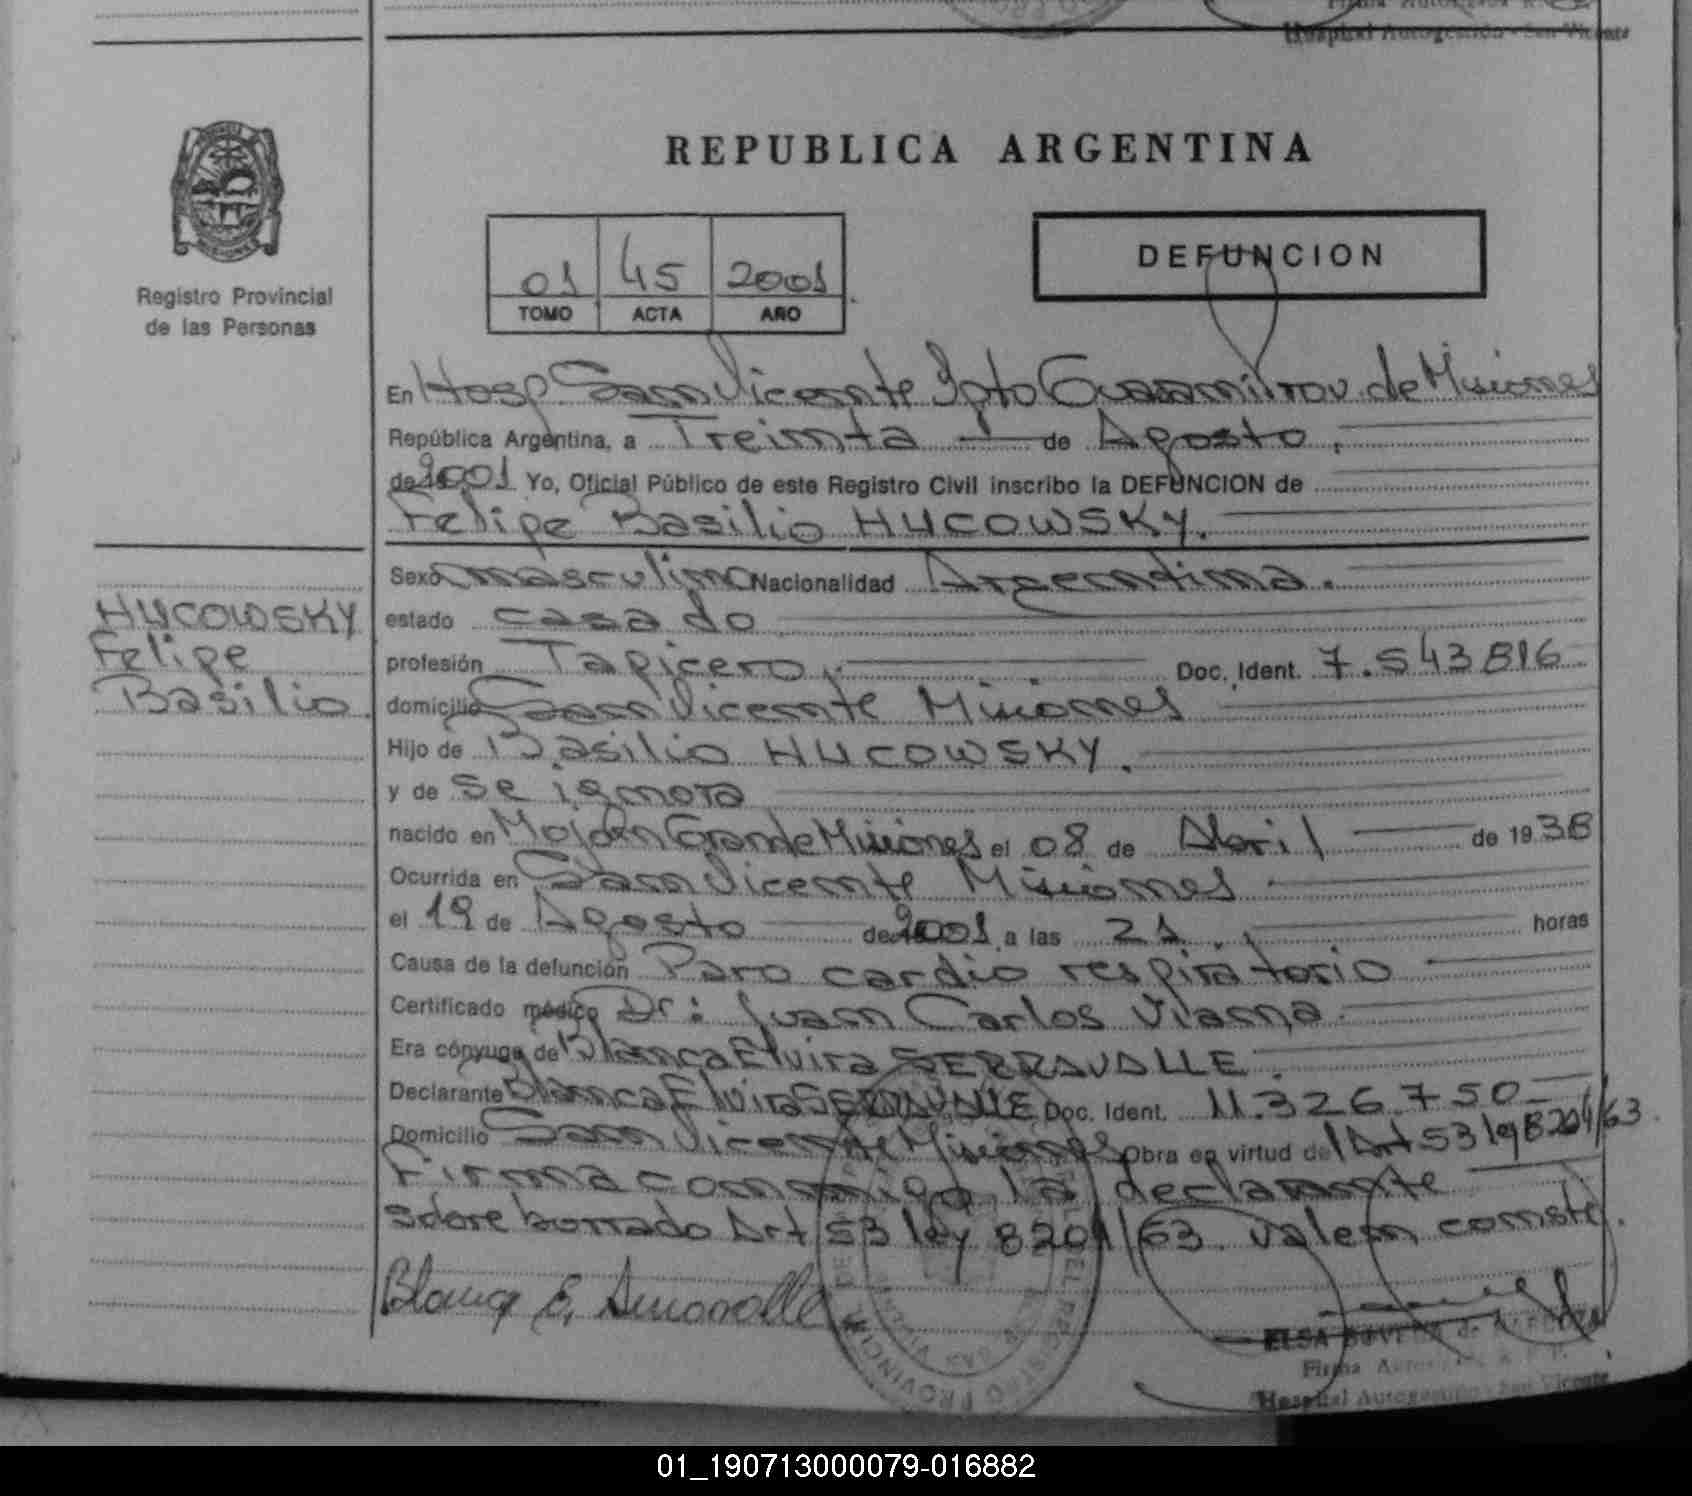 Hospital Autogestión - San Vicente
REPUBLICA ARGENTINA
Registro Provincial
de las Personas
01 45 2001
TOMO ACTA AÑO
DEFUNCION
En Hosp. San Vicente Dpto Guaraní Prov. de Misiones
República Argentina, a Treinta de Agosto
de 2001 Yo, Oficial Público de este Registro Civil inscribo la DEFUNCION de
Felipe Basilio HUCOWSKY.
HUCOWSKY
Felipe
Basilio.
Sexo masculino Nacionalidad Argentina.
estado casado
profesión Tapicero. Doc. Ident. 7.543816
domicilio San Vicente Misiones
Hijo de Basilio HUCOWSKY.
y de se ignora
nacido en Mojón Grande Misiones el 08 de Abril de 1938
Ocurrida en San Vicente Misiones
el 19 de Agosto de 2001 a las 21. horas
Causa de la defunción Paro cardio respiratorio
Certificado médico Dr: Juan Carlos Viana
Era cónyuge de Blanca Elvira SERRAVALLE.
Declarante Blanca Elvira SERRAVALLE Doc. Ident. 11.326.750
Domicilio San Vicente Misiones Obra en virtud del Art 53 ley 8204/63.
Firma conmigo la declarante
sobre borrado Art 53 ley 8204/63. valen conste.
Blanca E. Serravalle
ELSA
Firma
Hospital Autogestión - San Vicente
01_190713000079-016882